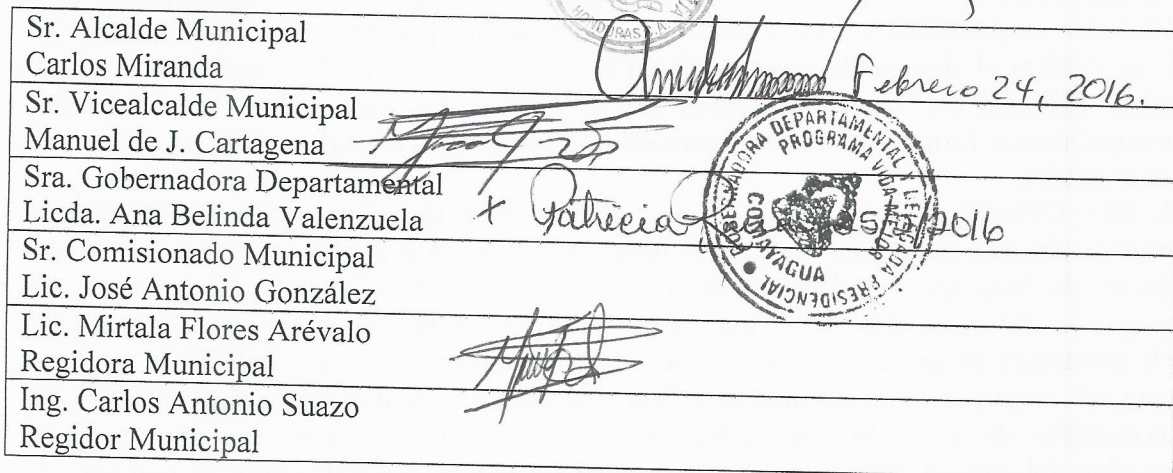 HONDURAS C.A.
Sr. Alcalde Municipal
Carlos Miranda
Febrero 24, 2016.
Sr. Vicealcalde Municipal
Manuel de J. Cartagena
Sra. Gobernadora Departamental
Licda. Ana Belinda Valenzuela
+ Patricia /2016
GOBERNADORA DEPARTAMENTAL Y DELEGADA PRESIDENCIAL
PROGRAMA VIDA MEJOR
COMAYAGUA
Sr. Comisionado Municipal
Lic. José Antonio González
Lic. Mirtala Flores Arévalo
Regidora Municipal
Ing. Carlos Antonio Suazo
Regidor Municipal